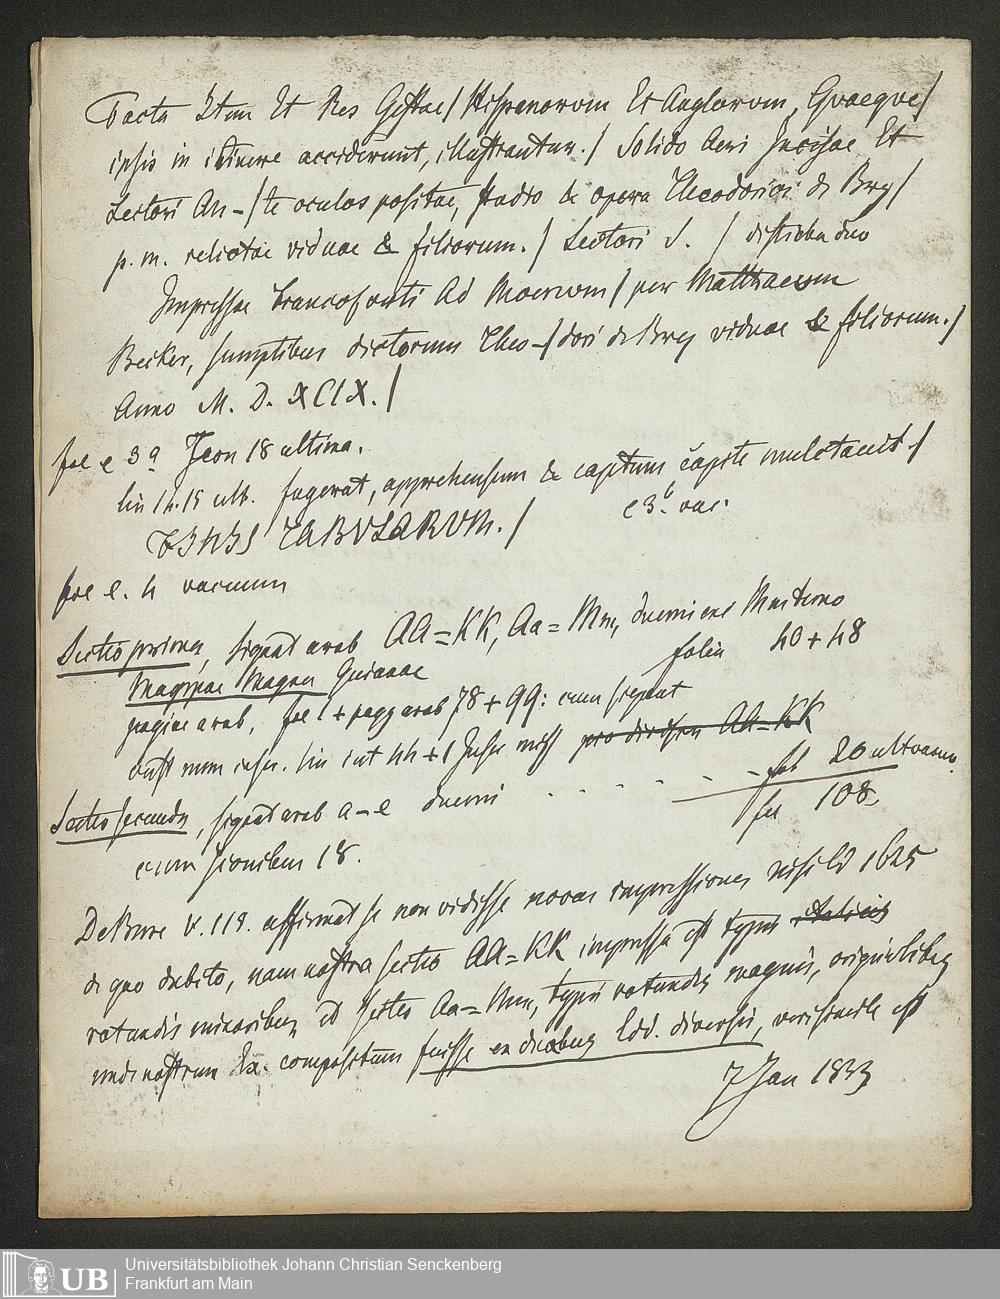 Facta Item Et Res Gestae / Hispanorum Et Anglorum, Quaeque /
ipsis in itinere acciderunt, illustrantur. / Solido Aeri Incisae Et
Lectori An- / te oculos positae, studio & opera Theodorici de Bry /
p. m. relictae viduae & filiorum. / Lectori S. / disticha duo
Impressae Francofurti Ad Moenum / per Matthaeum
Becker, sumptibus dictorum Theo- / dori de Bry viduae & filiorum. /
Anno M. D. XCIX. /
fol e 3 a Icon 18 ultima.
lin 14.15 ult. fugerat, apprehensum & captum capite mulctavit. /
FINIS TABVLARVM. / e 3 b. vac.
fol e. 4 vacuum
Sectio prima, signat arab AA=KK, Aa=Mm, duerniones
folia 40 + 48
Mappae Magna Guianae
paginae arab, fol 1 + pagg arab 78 + 99: cum signat
cust num
Sectio secunda, signat arab a-e duerni . . . . . . fol 20 ult vacuum.
fol 108.
cum iconibus 18.
De Bure V. 118. affirmat se non vidisse novas impressiones nisi Ed 1625
de quo dubito, nam nostra sectio AA=KK impressa est typis italicis
rotundis minoribus, et sectio Aa=Mm, typis rotundis magnis, originalibus
unde nostrum Ex. compositum fuisse ex duobus Edd. diversis, verisimile est
7 Jan 1833
UB
Universitätsbibliothek Johann Christian Senckenberg
Frankfurt am Main